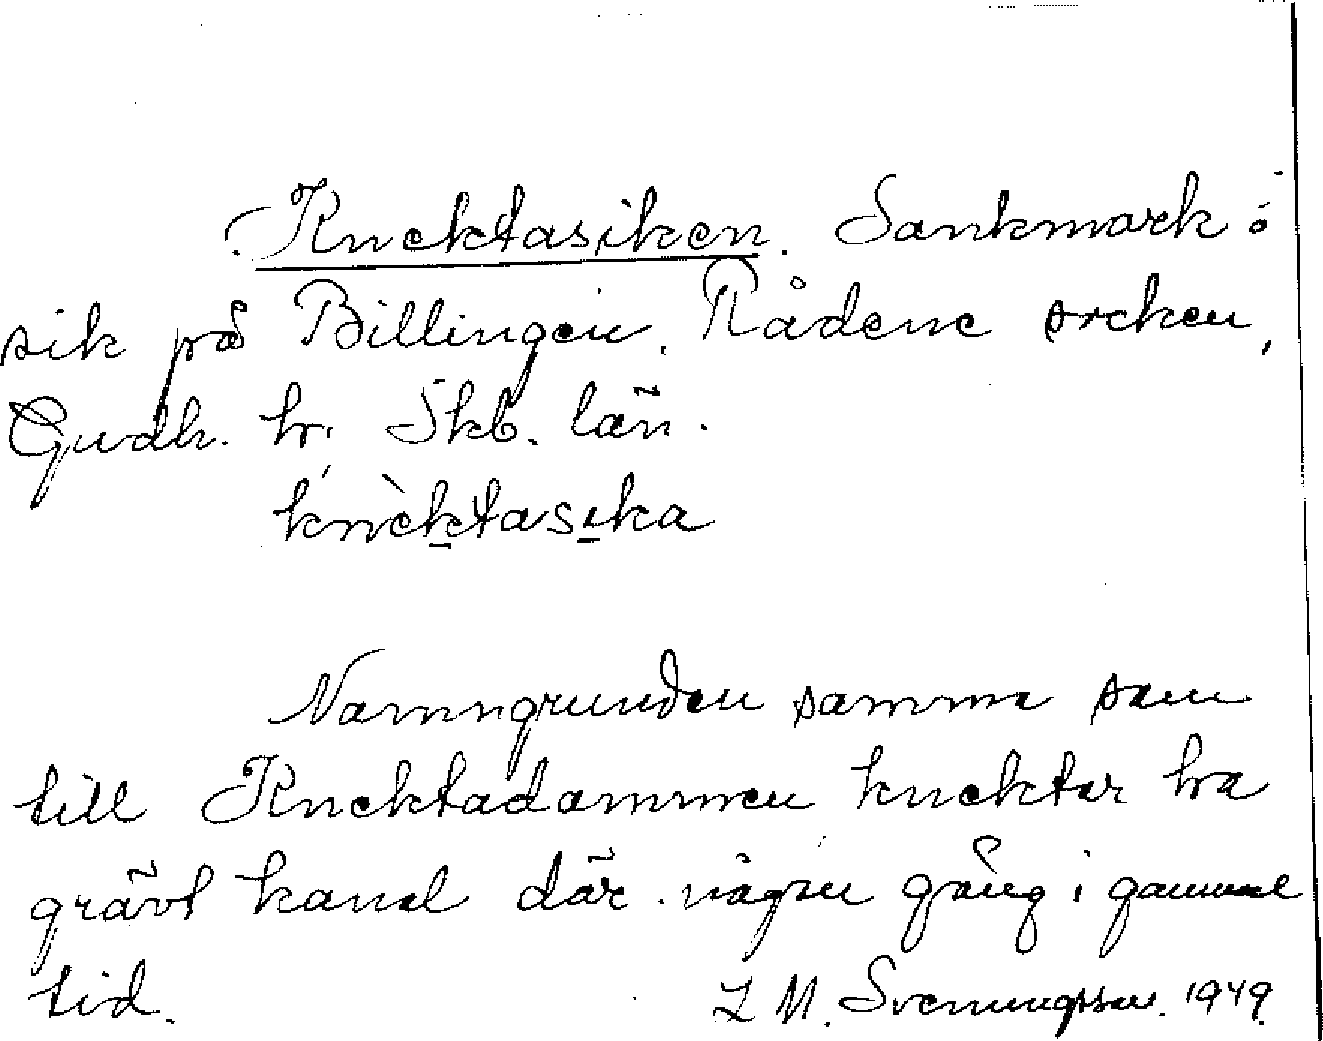 Knektasiken. Sankmark o
sik på Billingen, Rådene socken,
Gudh. hr. Skb. län.
knècktasika
Namngrunden samma som
till Knektadammen knektar ha
grävt kanal där någon gång i gammal
tid. L M. Svenungsson. 1949.